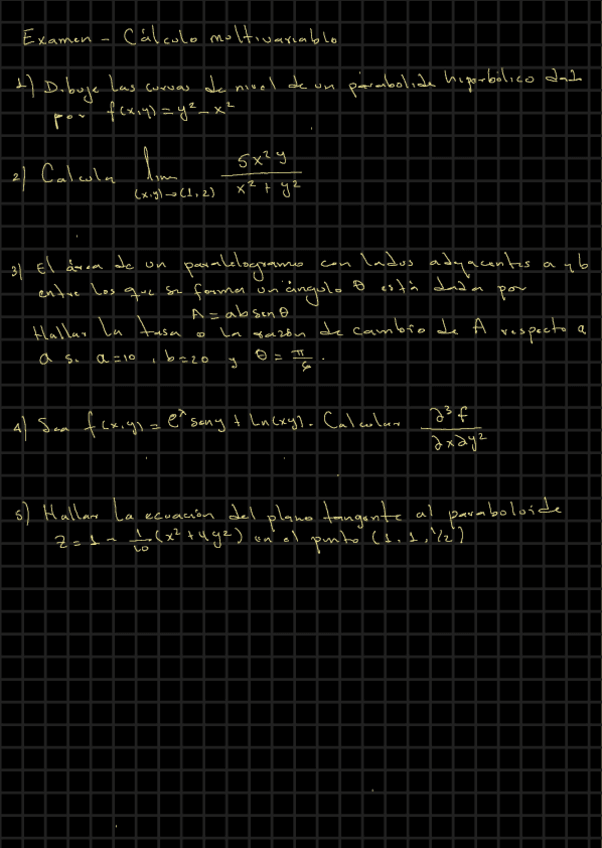 Examen - Cálculo multivariable
1) Dibuje las curvas de nivel de un paraboloide hiperbólico dada
por f(x,y) = y² - x²
2) Calcula lim (x,y)→(1,2) 5x²y / x² + y²
3) El área de un paralelogramo con lados adyacentes a y b
entre los que se forma un ángulo θ está dada por
A = ab sen θ
Hallar la tasa o la razón de cambio de A respecto a
a si a=10, b=20 y θ = π/6.
4) Sea f(x,y) = eˣ sen y + Ln(xy). Calcular ∂³f / ∂x∂y²
5) Hallar la ecuación del plano tangente al paraboloide
z = 1 - 1/10 (x² + 4y²) en el punto (1, 1, 1/2)